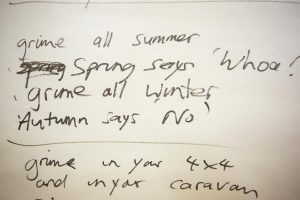 grime all summer
Spring says 'Whoa!'
grime all Winter
Autumn says 'No'
grime in your 4x4
and in your caravan